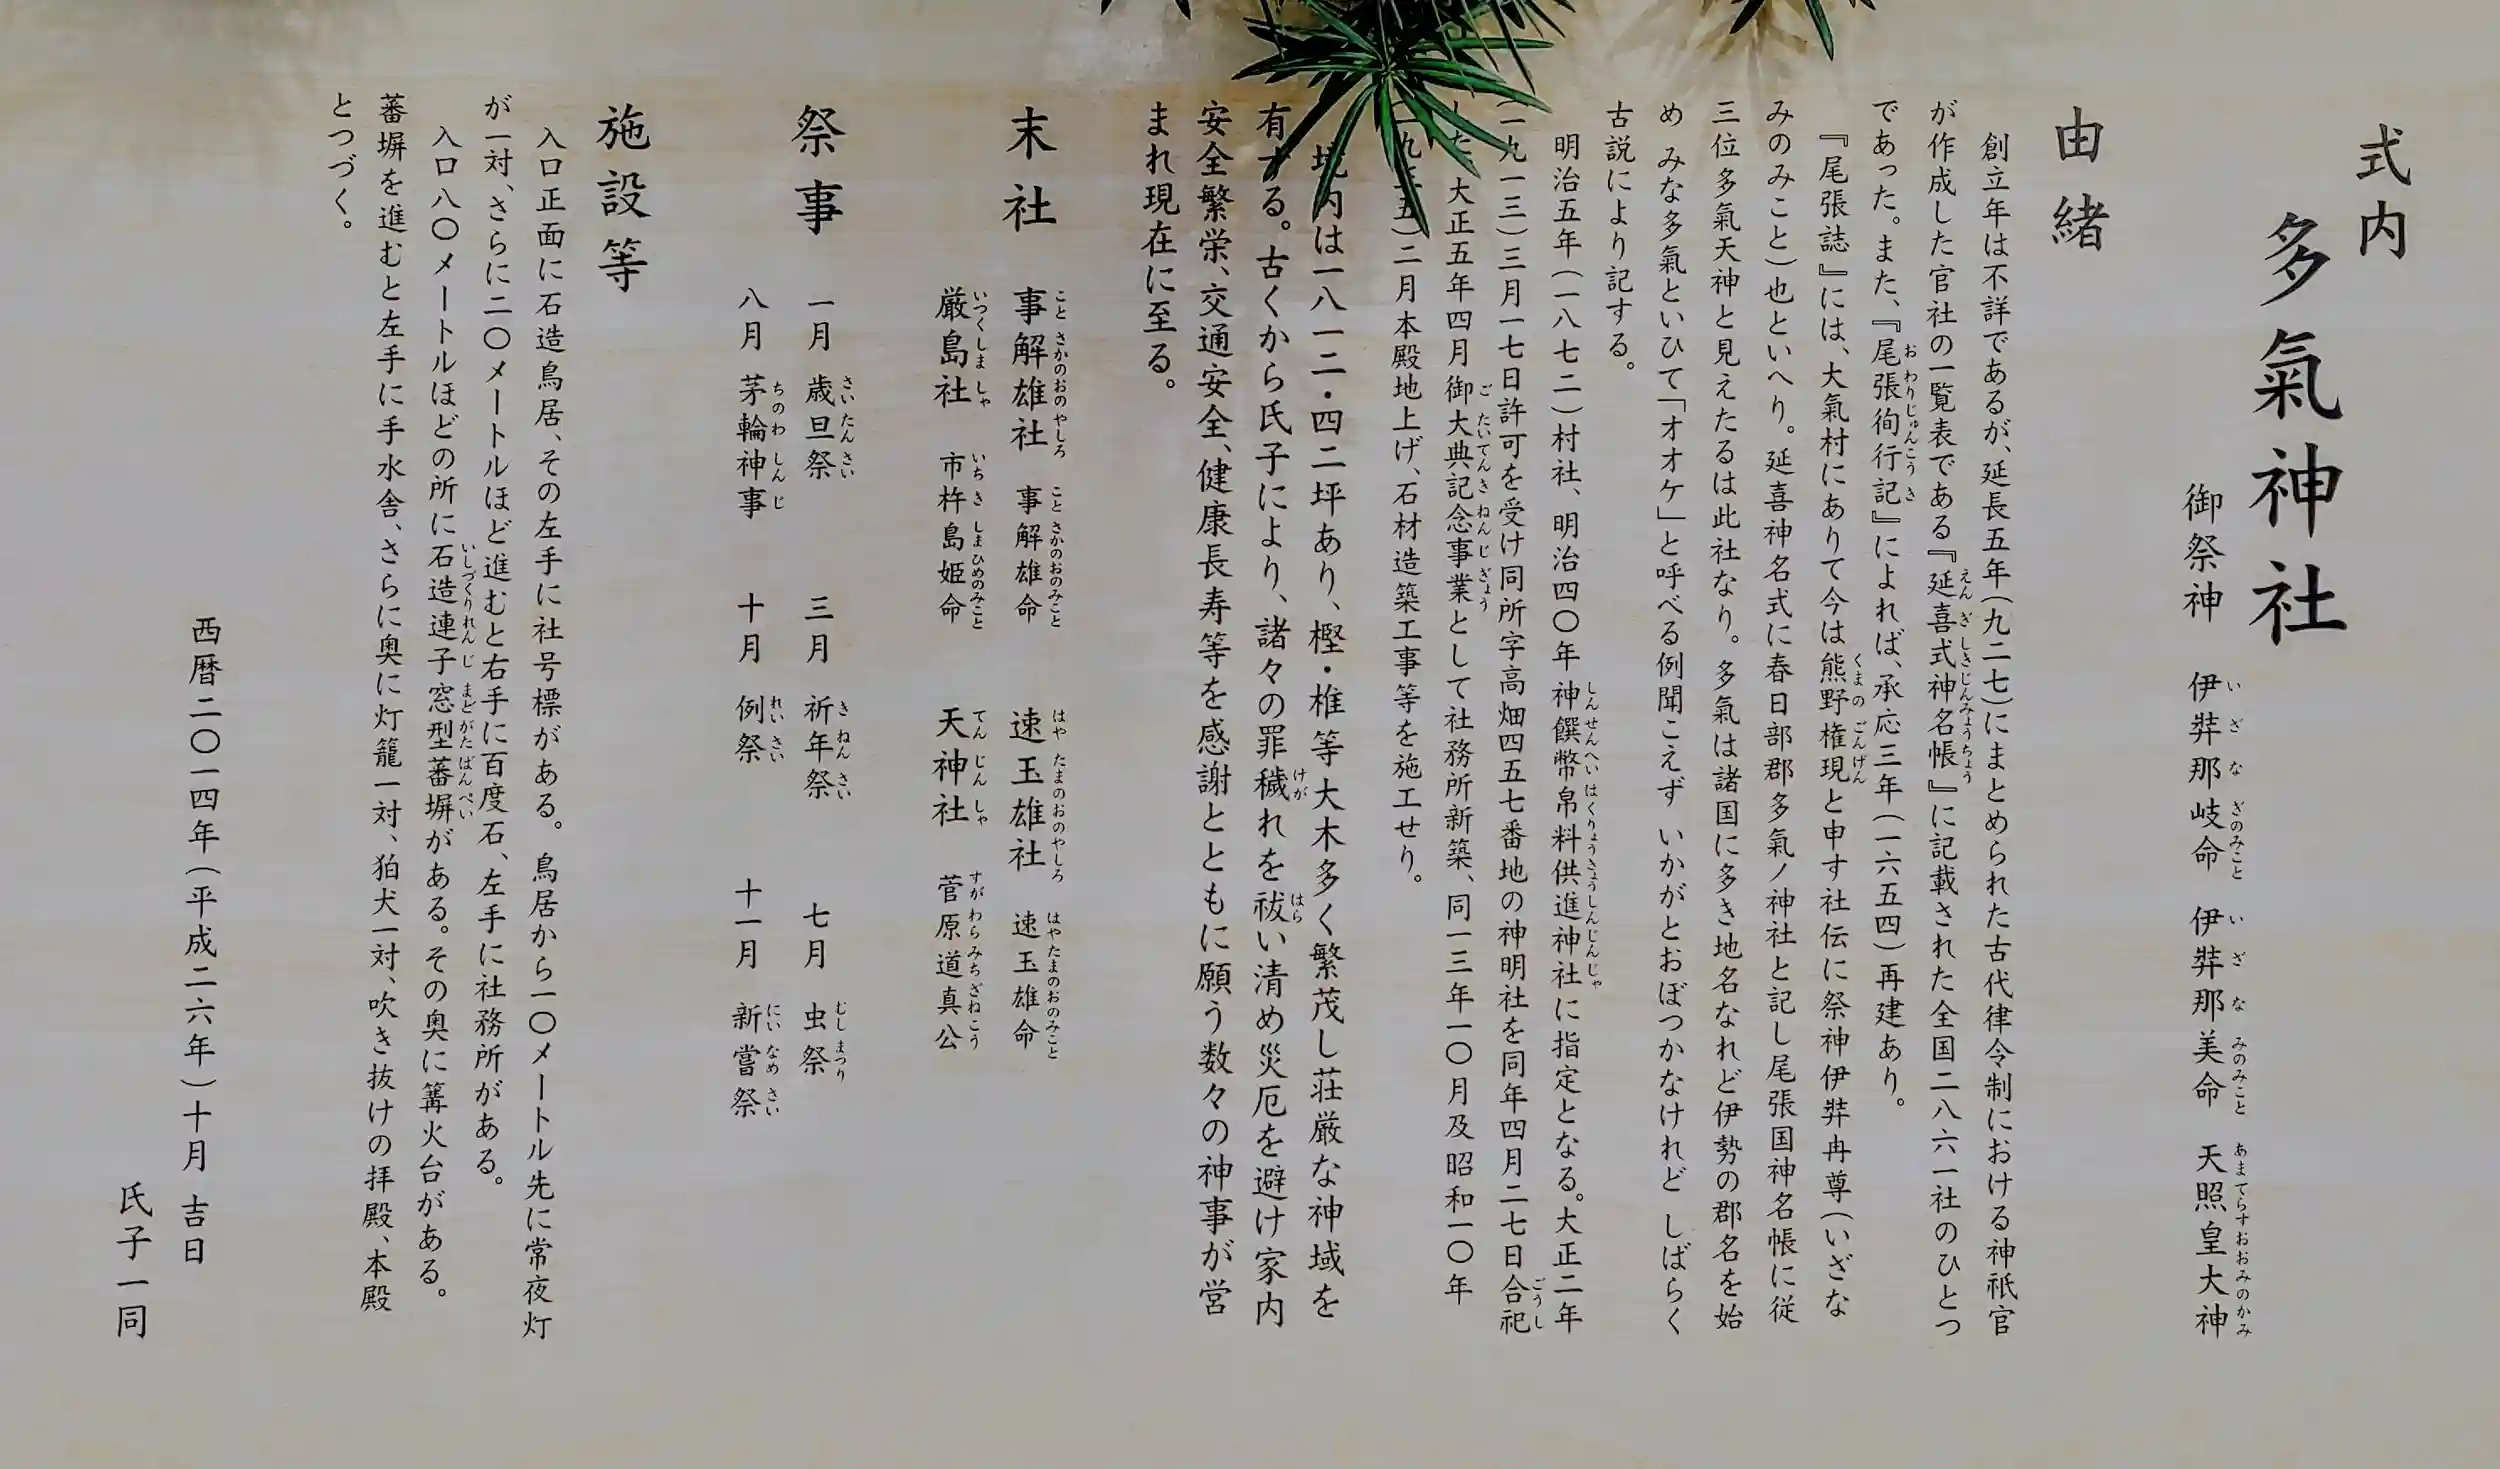 式内
多氣神社
御祭神 伊弉那岐命 伊弉那美命 天照皇大神
由緒
創立年は不詳であるが、延長五年(九二七)にまとめられた古代律令制における神祇官
が作成した官社の一覧表である『延喜式神名帳』に記載された全国二八六一社のひとつ
であった。また、『尾張徇行記』によれば、承応三年(一六五四)再建あり。
『尾張誌』には、大氣村にありて今は熊野権現と申す社伝に祭神伊弉冉尊(いざな
みのみこと)也といへり。延喜神名式に春日部郡多氣ノ神社と記し尾張国神名帳に従
三位多氣天神と見えたるは此社なり。多氣は諸国に多き地名なれど伊勢の郡名を始
め みな多氣といひて「オオケ」と呼べる例聞こえず いかがとおぼつかなけれど しばらく
古説により記する。
明治五年(一八七二)村社、明治四〇年神饌幣帛料供進神社に指定となる。大正二年
(一九一三)三月一七日許可を受け同所字高畑四五七番地の神明社を同年四月二七日合祀
した。大正五年四月御大典記念事業として社務所新築、同一三年一〇月及昭和一〇年
(一九三五)二月本殿地上げ、石材造築工事等を施工せり。
境内は一八一二・四二坪あり、樫・椎等大木多く繁茂し荘厳な神域を
有する。古くから氏子により、諸々の罪穢れを祓い清め災厄を避け家内
安全繁栄、交通安全、健康長寿等を感謝とともに願う数々の神事が営
まれ現在に至る。
末社 事解雄社 事解雄命 速玉雄社 速玉雄命
厳島社 市杵島姫命 天神社 菅原道真公
祭事 一月 歳旦祭 三月 祈年祭 七月 虫祭
八月 茅輪神事 十月 例祭 十一月 新嘗祭
施設等
入口正面に石造鳥居、その左手に社号標がある。鳥居から一〇メートル先に常夜灯
が一対、さらに二〇メートルほど進むと右手に百度石、左手に社務所がある。
入口八〇メートルほどの所に石造連子窓型蕃塀がある。その奥に篝火台がある。
蕃塀を進むと左手に手水舎、さらに奥に灯籠一対、狛犬一対、吹き抜けの拝殿、本殿
とつづく。
西暦二〇一四年(平成二六年)十月 吉日
氏子一同